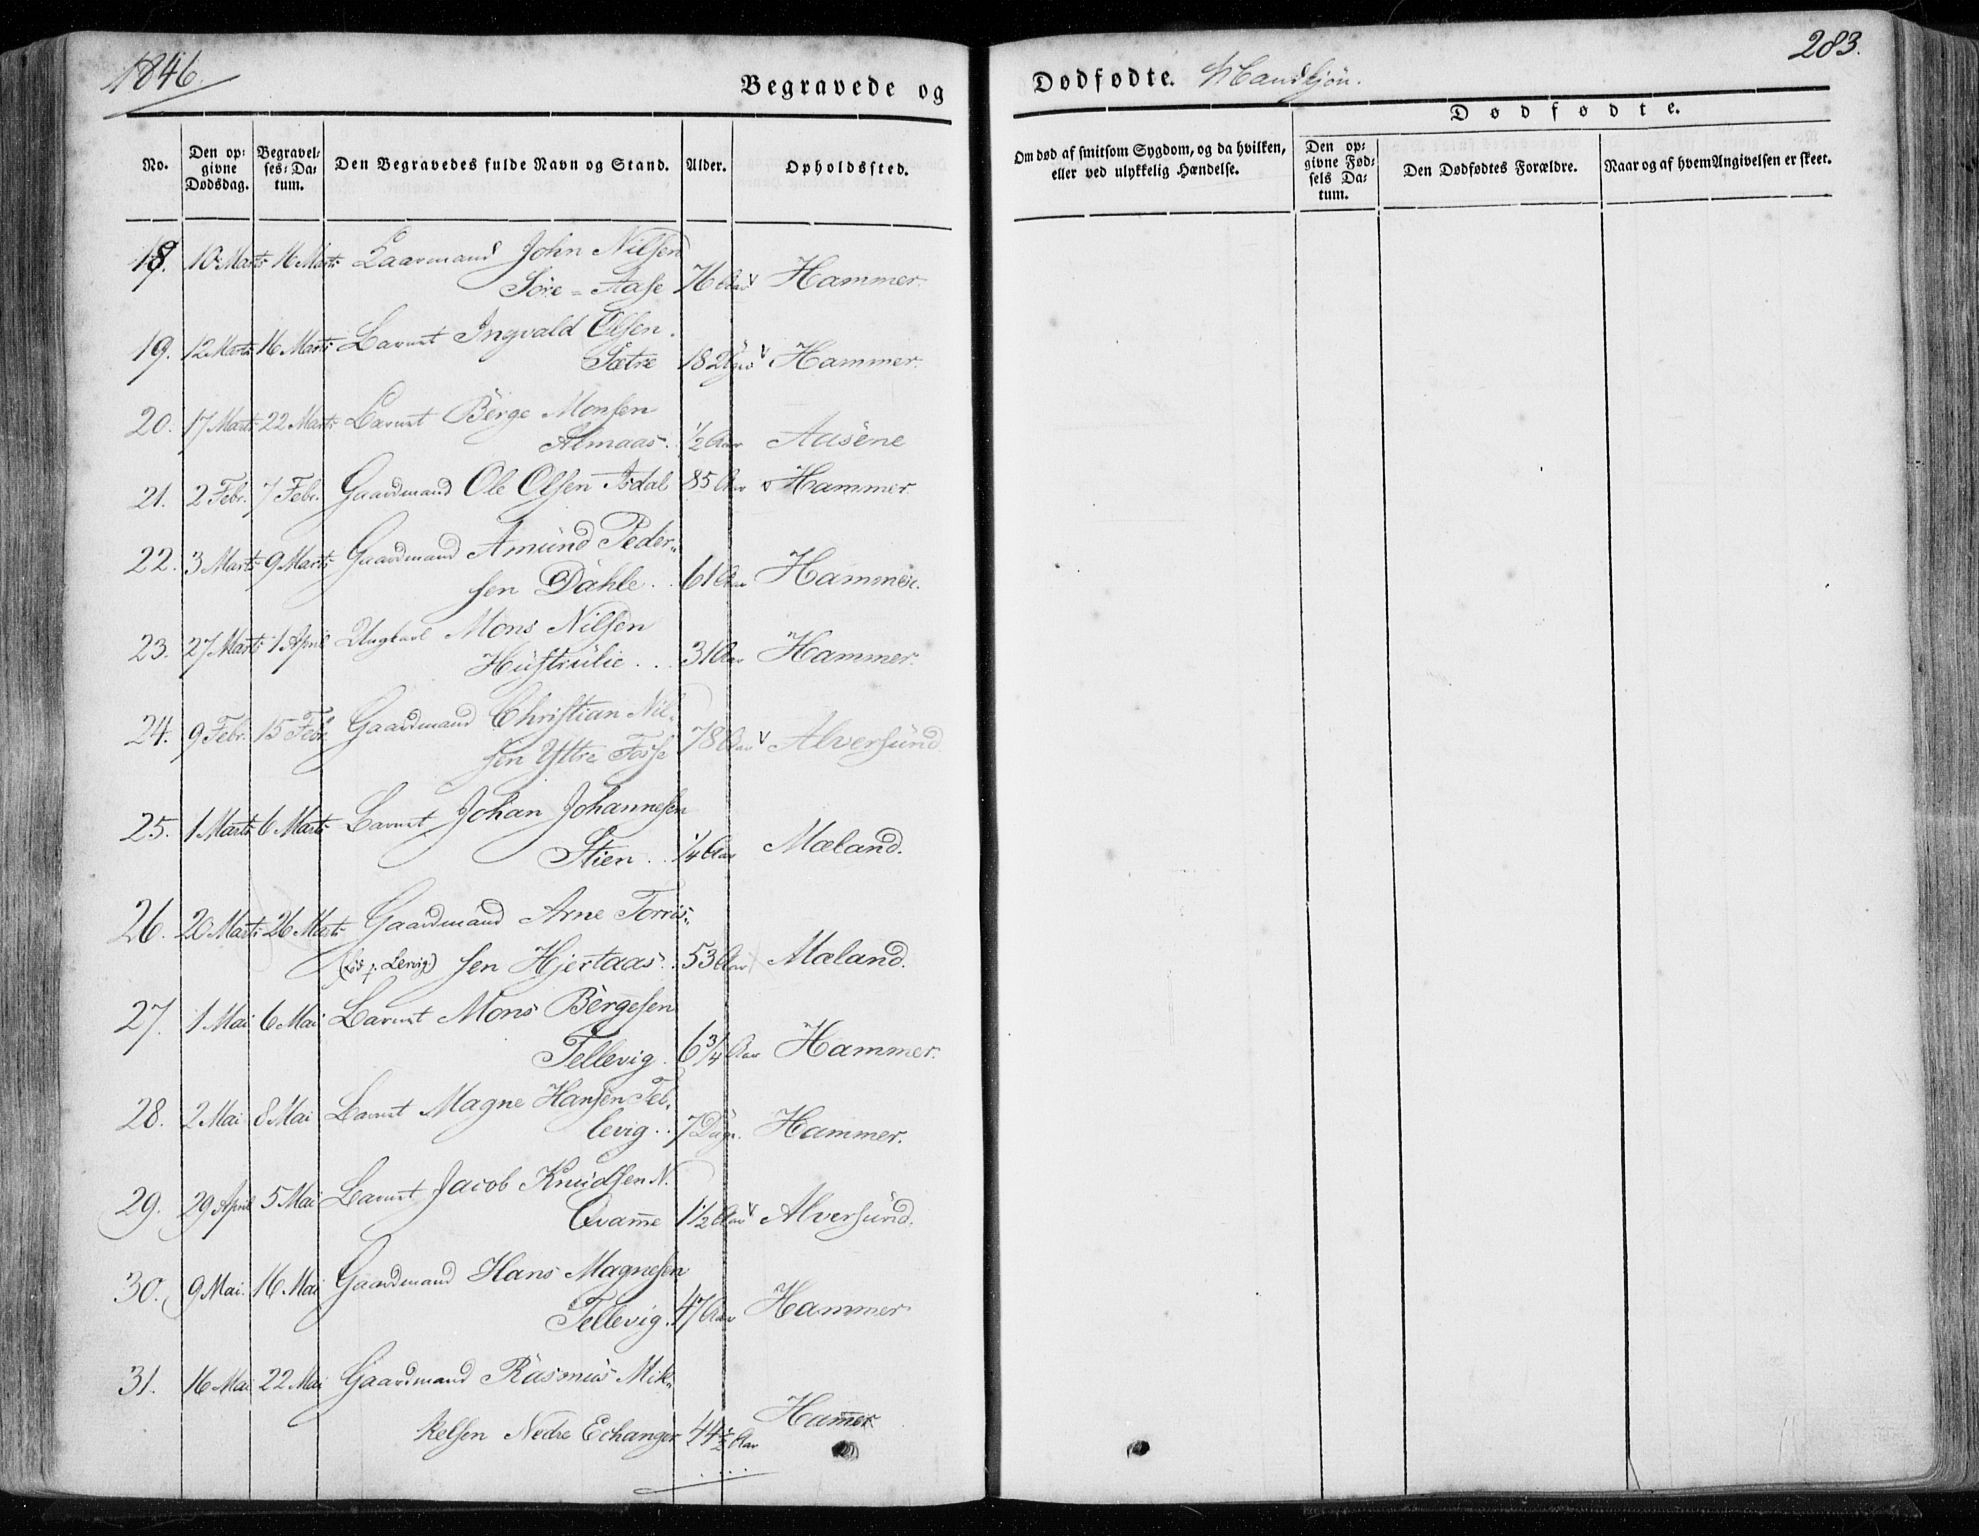 1846.
Begravede og
Dødfødte. Mandkjøn.
283.
No.
Den op-
givne
Dødsdag.
Begravel-
ses-Da-
tum.
Den Begravedes fulde Navn og Stand.
Alder.
Opholdssted.
Om død af smitsom Sygdom, og da hvilken,
eller ved ulykkelig Hændelse.
Dødfødte.
Den op-
givne Fød-
sels Da-
tum.
Den Dødfødtes Forældre.
Naar og af hvem Angivelsen er skeet.
18. 10 Marts 16 Marts Laarmand John Nilsen
Søre-Aase 76 Aar v Hammer.
19. 12 Marts 16 Marts Barnet Ingvald Olsen
Sætre 18 Dage v Hammer.
20. 17 Marts 22 Marts Barnet Børge Monsen
Almaas. 1/2 Aar Aasene
21. 2 Febr. 7 Febr. Gaardmand Ole Olsen Isdal 85 Aar v Hammer
22. 3 Marts 9 Marts Gaardmand Amund Peder-
sen Dahle. 61 Aar Hammer.
23. 27 Marts 1 April Ungkarl Mons Nilsen
Hustrulie . . 31 Aar Hammer.
24. 9 Febr. 15 Febr. Gaardmand Christian Nil-
sen Yttre Fosse 78 Aar v Alversund
25. 1 Marts 6 Marts Barnet Johan Johannesen
Stien . . 1/4 Aar Mæland.
26. 20 Marts 26 Marts Gaardmand Arne Torris-
sen Hjertaas . 53 Aar Mæland.
27. 1 Mai 6 Mai Barnet Mons Børgesen
Tellevig. 6 3/4 Aar Hammer.
28. 2 Mai 8 Mai Barnet Magne Hansen Tel-
levig . . 7 Dage. Hammer.
29. 29 April 5 Mai Barnet Jacob Knudsen N.
Qvam̄e 1 1/2 Aar v Alversund.
30. 9 Mai. 16 Mai Gaardmand Hans Magnesen
Tellevig. 47 Aar Hammer
31. 16 Mai 22 Mai Gaardmand Rasmus Mik-
kelsen Nedre Echanger 44 1/2 Aar Ham̄er